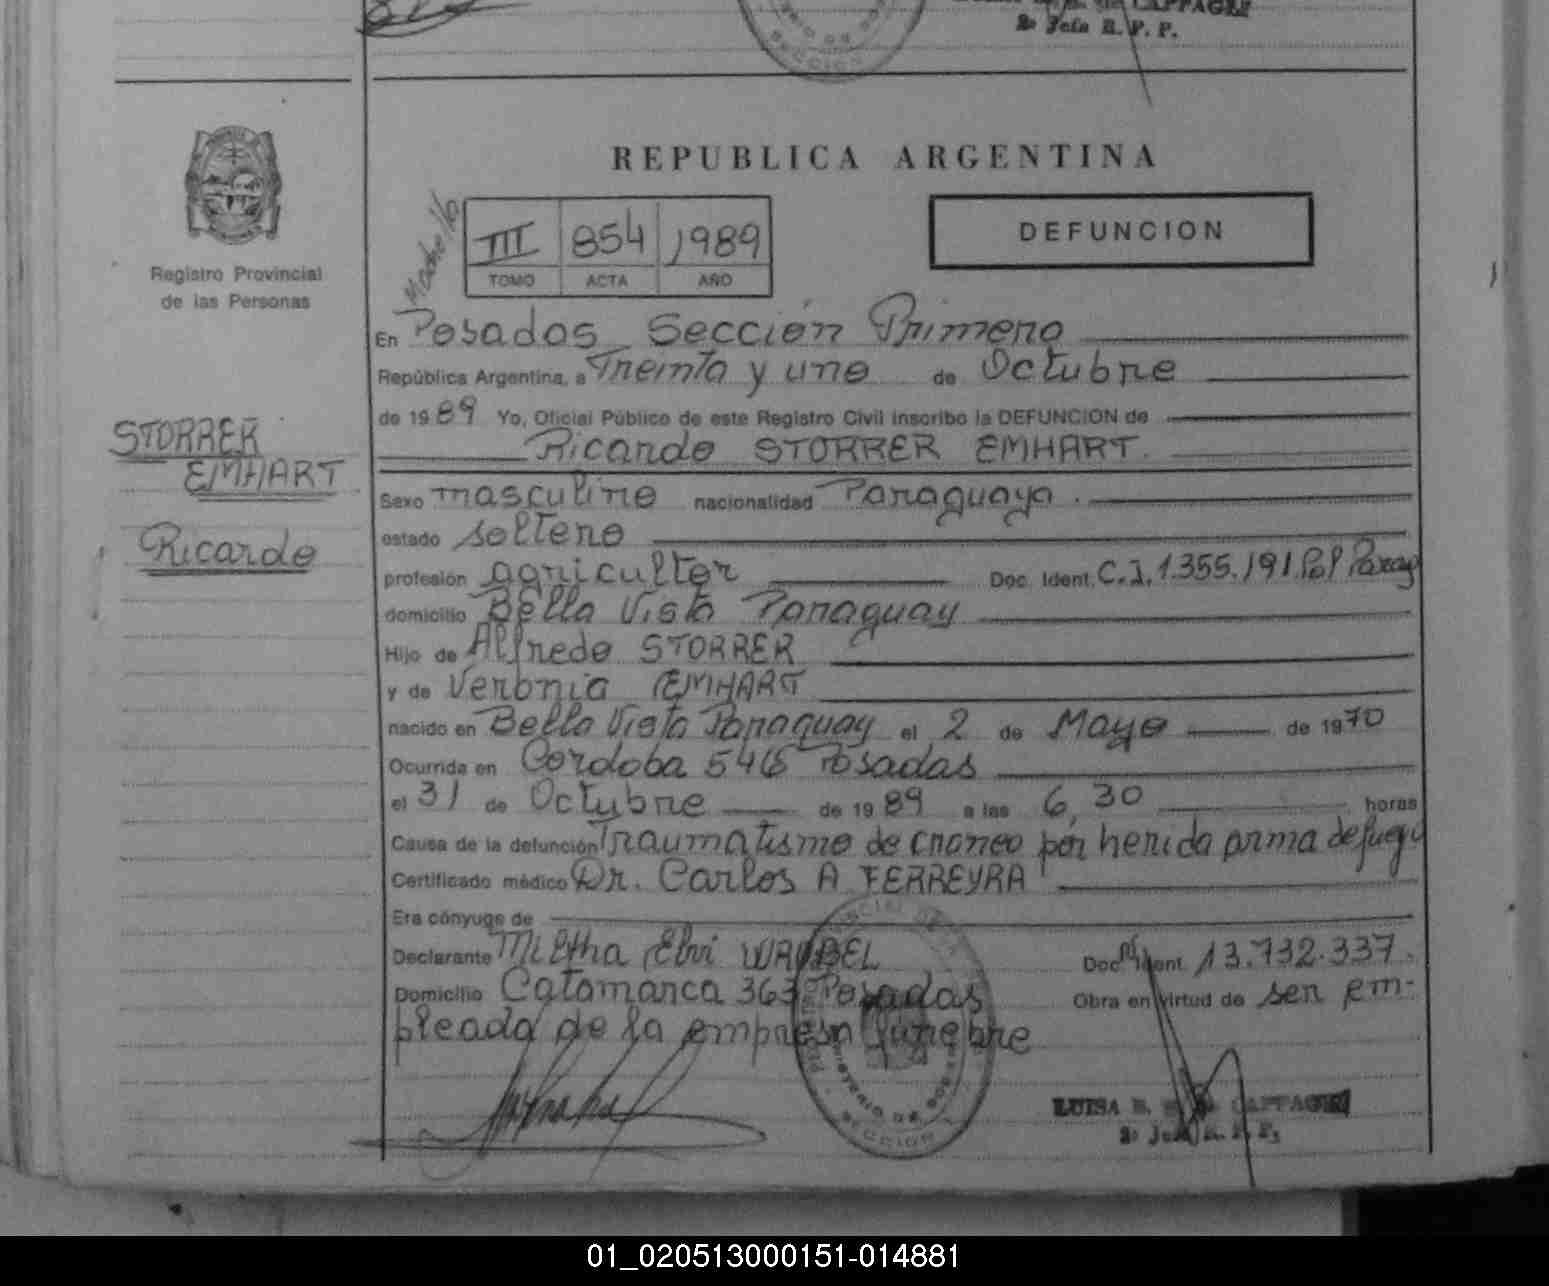 2º Jefa R. P. P.
REPUBLICA ARGENTINA
III 854 1989
TOMO ACTA AÑO
DEFUNCION
Registro Provincial
de las Personas
STORRER
EMHART
Ricardo
En Posadas Sección Primera
República Argentina, a Treinta y uno de Octubre
de 1989 Yo, Oficial Público de este Registro Civil inscribo la DEFUNCION de
Ricardo STORRER EMHART.
Sexo masculino nacionalidad Paraguaya.
estado soltero
profesión agricultor Doc. Ident. C.I. 1.355.191 Pol Parag
domicilio Bella Vista Paraguay
Hijo de Alfredo STORRER
y de Veronia EMHART
nacido en Bella Vista Paraguay el 2 de Mayo de 1970
Ocurrida en Cordoba 546 Posadas
el 31 de Octubre de 1989 a las 6,30 horas
Causa de la defunción Traumatismo de craneo por herida arma de fuego
Certificado médico Dr. Carlos A FERREYRA
Era cónyuge de
Declarante Miltha Elvi Doc. Ident. 13.732.337.
Domicilio Catamarca 363 Posadas Obra en virtud de ser em-
pleada de la empresa funebre
SECCION
LUISA
2º Jefa R. P. P.
01_020513000151-014881